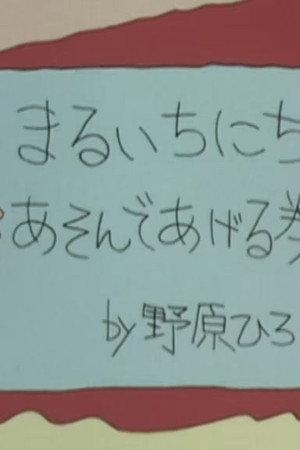 まるいちにち
あそんであげる券
by野原ひろ